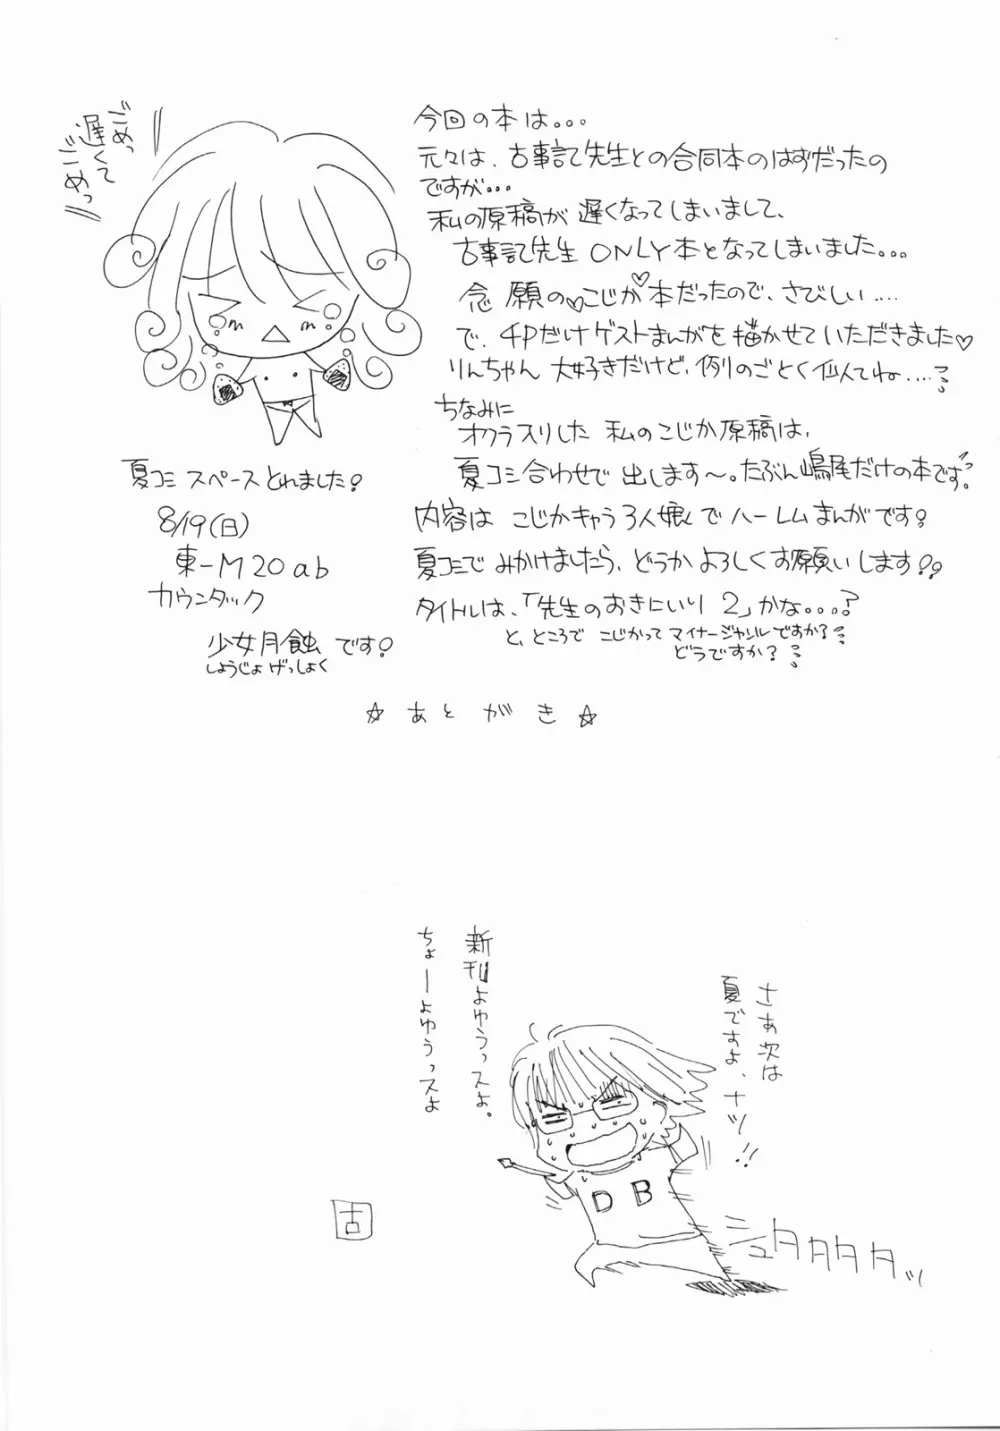 ごめっ
遅くて
ごめっ
今回の本は。。。
元々は、古事記先生との合同本のはずだったの
ですが...
私の原稿が遅くなってしまいまして、
古事記先生ONLY本となってしまいました。。。
念願の♡こじか♡本だったので、さびしい....
で、4Pだけゲストまんがを描かせていただきました♡
りんちゃん大好きだけど、例のごとく似てね....???
ちなみに
オクラスリした私のこじか原稿は、
夏コミ合わせで出します〜。たぶん嶋尾だけの本です??
内容はこじかキャラ3人娘でハーレムまんがです!
夏コミでみかけましたら、どうかよろしくお願いします!!
タイトルは、「先生のおきにいり2」かな。。。。?
と、ところで こじかってマイナージャンルですか???
どうですか???
夏コミ スペースとれました!
8/19(日)
東-M20ab
カウンタック
少女月蝕です!
しょうじょげっしょく
☆あとがき☆
さあ次は
夏ですよ、ナツ!!
新刊よゆうっスよ。
ちょーよゆうっスよ
DB
シュタタタタッ
古